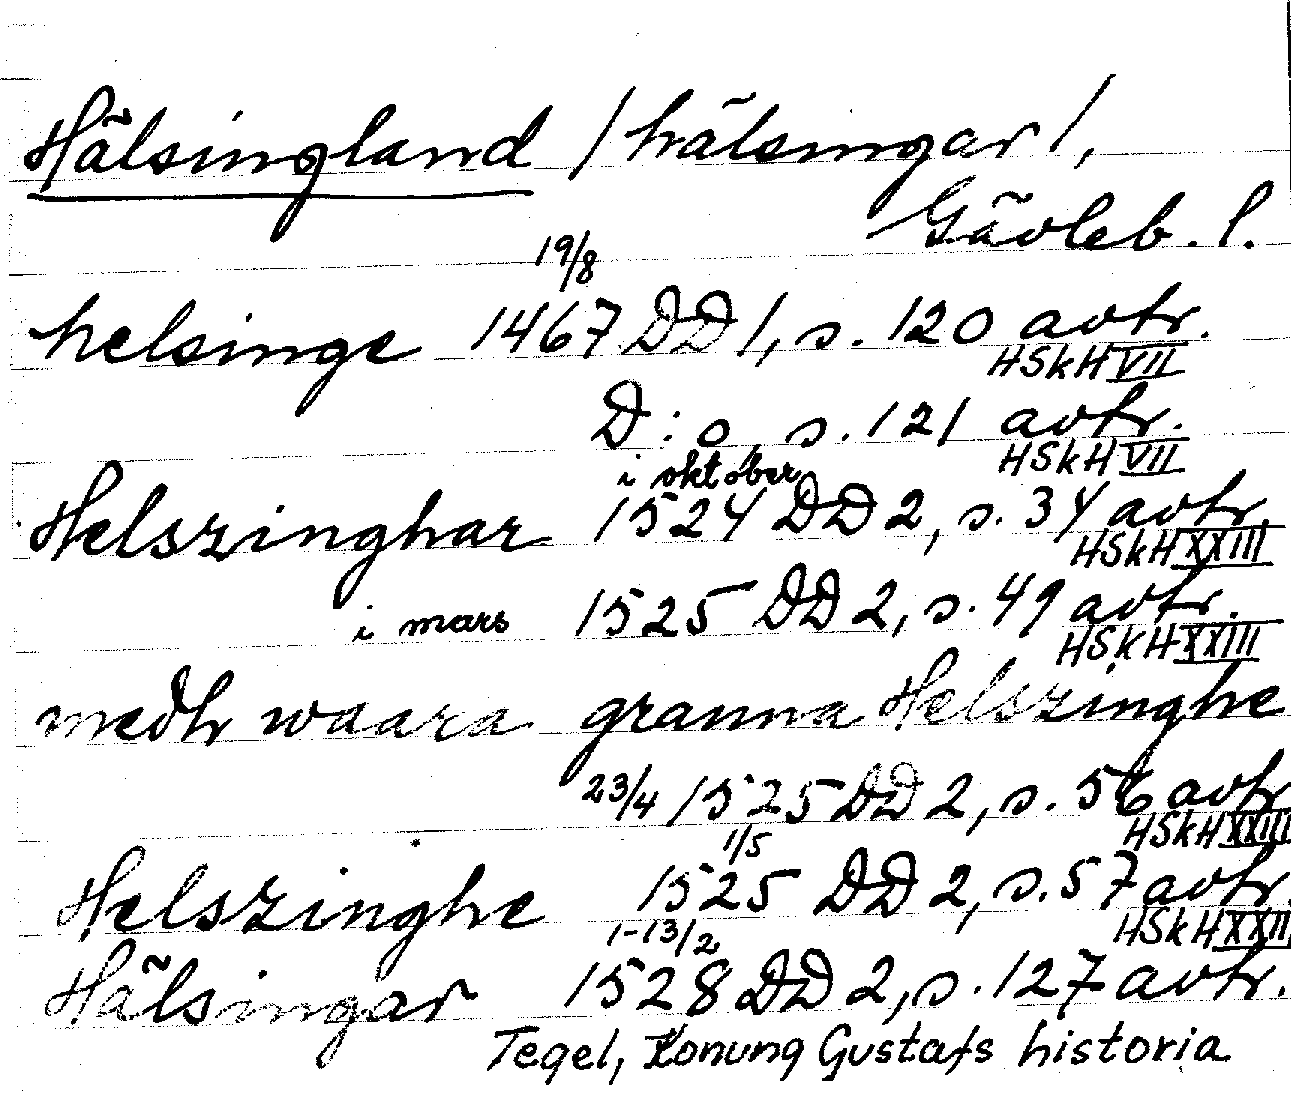 Hälsingland /hälsingar/,
Gävleb. l.
19/8
helsinge 1467 DD 1, s. 120 avtr.
HSkH VII
D:o s. 121 avtr.
HSkH VII
i oktober
Helszinghar 1524 DD 2, s. 34 avtr.
HSkH XXIII
i mars 1525 DD 2, s. 49 avtr.
HSkH XXIII
medh waara granna Helszinghe
23/4 1525 DD 2, s. 56 avtr
HSkH XXIII
1/5
Helszinghe 1525 DD 2, s. 57 avtr.
HSkH XXIII
1-13/2
Hälsingar 1528 DD 2, s. 127 avtr.
Tegel, Konung Gustafs historia